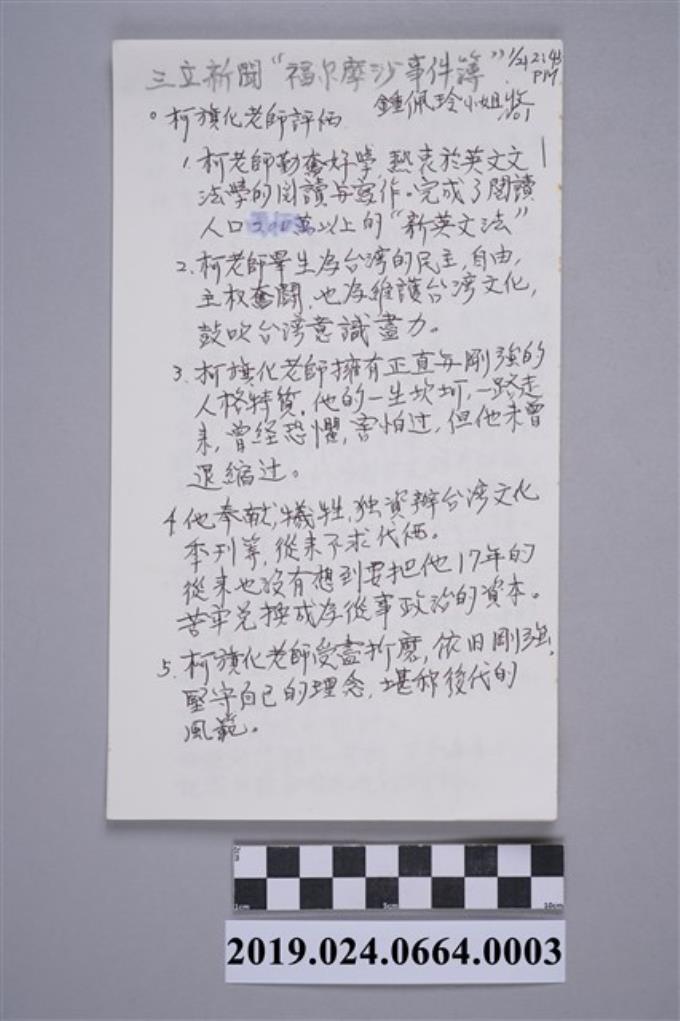 三立新聞“福尔摩沙事件簿” 1/24 2:45
PM
鍾佩玲小姐收
NO1
。柯旗化老師評価
1. 柯老師勤奮好學, 熱衷於英文文
法學的閱讀与寫作。完成了閱讀
人口 萬以上的“新英文法”
2. 柯老師畢生为台湾的民主, 自由,
主权奮鬪, 也为維護台湾文化,
鼓吹台湾意識盡力。
3. 柯旗化老師擁有正直与剛強的
人格特質, 他的一生坎坷, 一路走
来, 曾经恐懼, 害怕过, 但他未曾
退縮过。
4 他奉献, 犧牲, 独資辦台湾文化
季刊等, 從来不求代価。
從来也沒有想到要把他17年的
苦牢兌换成为從事政治的資本。
5. 柯旗化老師受盡折磨, 依旧剛強,
堅守自己的理念, 堪称後代的
風範。
1cm 5cm 10cm
2019.024.0664.0003